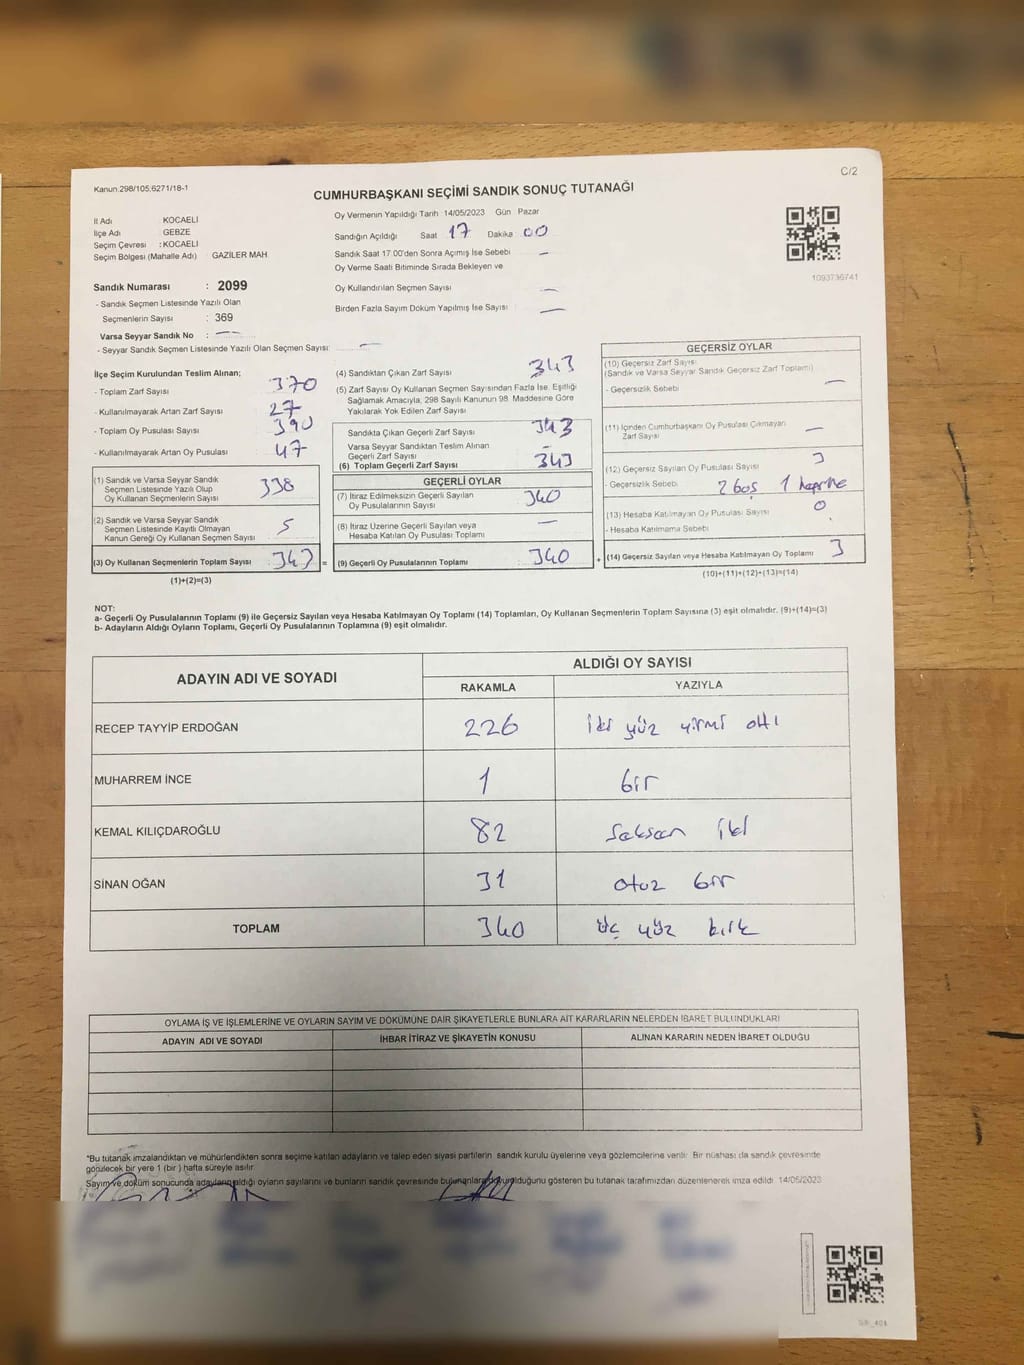 C/2
Kanun:298/105;6271/18-1
CUMHURBAŞKANI SEÇİMİ SANDIK SONUÇ TUTANAĞI
İl Adı KOCAELİ
İlçe Adı GEBZE
Seçim Çevresi : KOCAELİ
Seçim Bölgesi (Mahalle Adı) GAZİLER MAH
Sandık Numarası : 2099
- Sandık Seçmen Listesinde Yazılı Olan
Seçmenlerin Sayısı : 369
Varsa Seyyar Sandık No : —
- Seyyar Sandık Seçmen Listesinde Yazılı Olan Seçmen Sayısı: —
Oy Vermenin Yapıldığı Tarih 14/05/2023 Gün Pazar
Sandığın Açıldığı Saat 17 Dakika 00
Sandık Saat 17:00'den Sonra Açımış İse Sebebi —
Oy Verme Saati Bitiminde Sırada Bekleyen ve
Oy Kullandırılan Seçmen Sayısı —
Birden Fazla Sayım Döküm Yapılmış İse Sayısı —
1093736741
İlçe Seçim Kurulundan Teslim Alınan;
- Toplam Zarf Sayısı 370
- Kullanılmayarak Artan Zarf Sayısı 27
- Toplam Oy Pusulası Sayısı 390
- Kullanılmayarak Artan Oy Pusulası 47
(1) Sandık ve Varsa Seyyar Sandık
Seçmen Listesinde Yazılı Olup
Oy Kullanan Seçmenlerin Sayısı 338
(2) Sandık ve Varsa Seyyar Sandık
Seçmen Listesinde Kayıtlı Olmayan
Kanun Gereği Oy Kullanan Seçmen Sayısı 5
(3) Oy Kullanan Seçmenlerin Toplam Sayısı : 343 =
(1)+(2)=(3)
(4) Sandıktan Çıkan Zarf Sayısı 343
(5) Zarf Sayısı Oy Kullanan Seçmen Sayısından Fazla İse, Eşitliği
Sağlamak Amacıyla, 298 Sayılı Kanunun 98. Maddesine Göre
Yakılarak Yok Edilen Zarf Sayısı
Sandıkta Çıkan Geçerli Zarf Sayısı 343
Varsa Seyyar Sandıktan Teslim Alınan
Geçerli Zarf Sayısı –
(6) Toplam Geçerli Zarf Sayısı 343
GEÇERLİ OYLAR
(7) İtiraz Edilmeksizin Geçerli Sayılan
Oy Pusulalarının Sayısı 340
(8) İtiraz Üzerine Geçerli Sayılan veya
Hesaba Katılan Oy Pusulası Toplamı —
(9) Geçerli Oy Pusulalarının Toplamı : 340 +
GEÇERSİZ OYLAR
(10) Geçersiz Zarf Sayısı
(Sandık ve Varsa Seyyar Sandık Geçersiz Zarf Toplamı)
- Geçersizlik Sebebi —
(11) İçinden Cumhurbaşkanı Oy Pusulası Çıkmayan
Zarf Sayısı —
(12) Geçersiz Sayılan Oy Pusulası Sayısı 3
- Geçersizlik Sebebi 2 boş 1
(13) Hesaba Katılmayan Oy Pusulası Sayısı 0
- Hesaba Katılmama Sebebi
(14) Geçersiz Sayılan veya Hesaba Katılmayan Oy Toplamı 3
(10)+(11)+(12)+(13)=(14)
NOT:
a- Geçerli Oy Pusulalarının Toplamı (9) ile Geçersiz Sayılan veya Hesaba Katılmayan Oy Toplamı (14) Toplamları, Oy Kullanan Seçmenlerin Toplam Sayısına (3) eşit olmalıdır. (9)+(14)=(3)
b- Adayların Aldığı Oyların Toplamı, Geçerli Oy Pusulalarının Toplamına (9) eşit olmalıdır.
ADAYIN ADI VE SOYADI
ALDIĞI OY SAYISI
RAKAMLA YAZIYLA
RECEP TAYYİP ERDOĞAN 226 iki yüz yirmi altı
MUHARREM İNCE 1 bir
KEMAL KILIÇDAROĞLU 82 Seksen iki
SİNAN OĞAN 31 otuz bir
TOPLAM 340 üç yüz kırk
OYLAMA İŞ VE İŞLEMLERİNE VE OYLARIN SAYIM VE DÖKÜMÜNE DAİR ŞİKAYETLERLE BUNLARA AİT KARARLARIN NELERDEN İBARET BULUNDUKLARI
ADAYIN ADI VE SOYADI İHBAR İTİRAZ VE ŞİKAYETİN KONUSU ALINAN KARARIN NEDEN İBARET OLDUĞU
*Bu tutanak imzalandıktan ve mühürlendikten sonra seçime katılan adayların ve talep eden siyasi partilerin sandık kurulu üyelerine veya gözlemcilerine verilir. Bir nüshası da sandık çevresinde
görülecek bir yere 1 (bir) hafta süreyle asılır.
Sayım ve döküm sonucunda adayların aldığı oyların sayılarını ve bunların sandık çevresinde olduğunu gösteren bu tutanak tarafımızdan düzenlenerek imza edildi. 14/05/2023